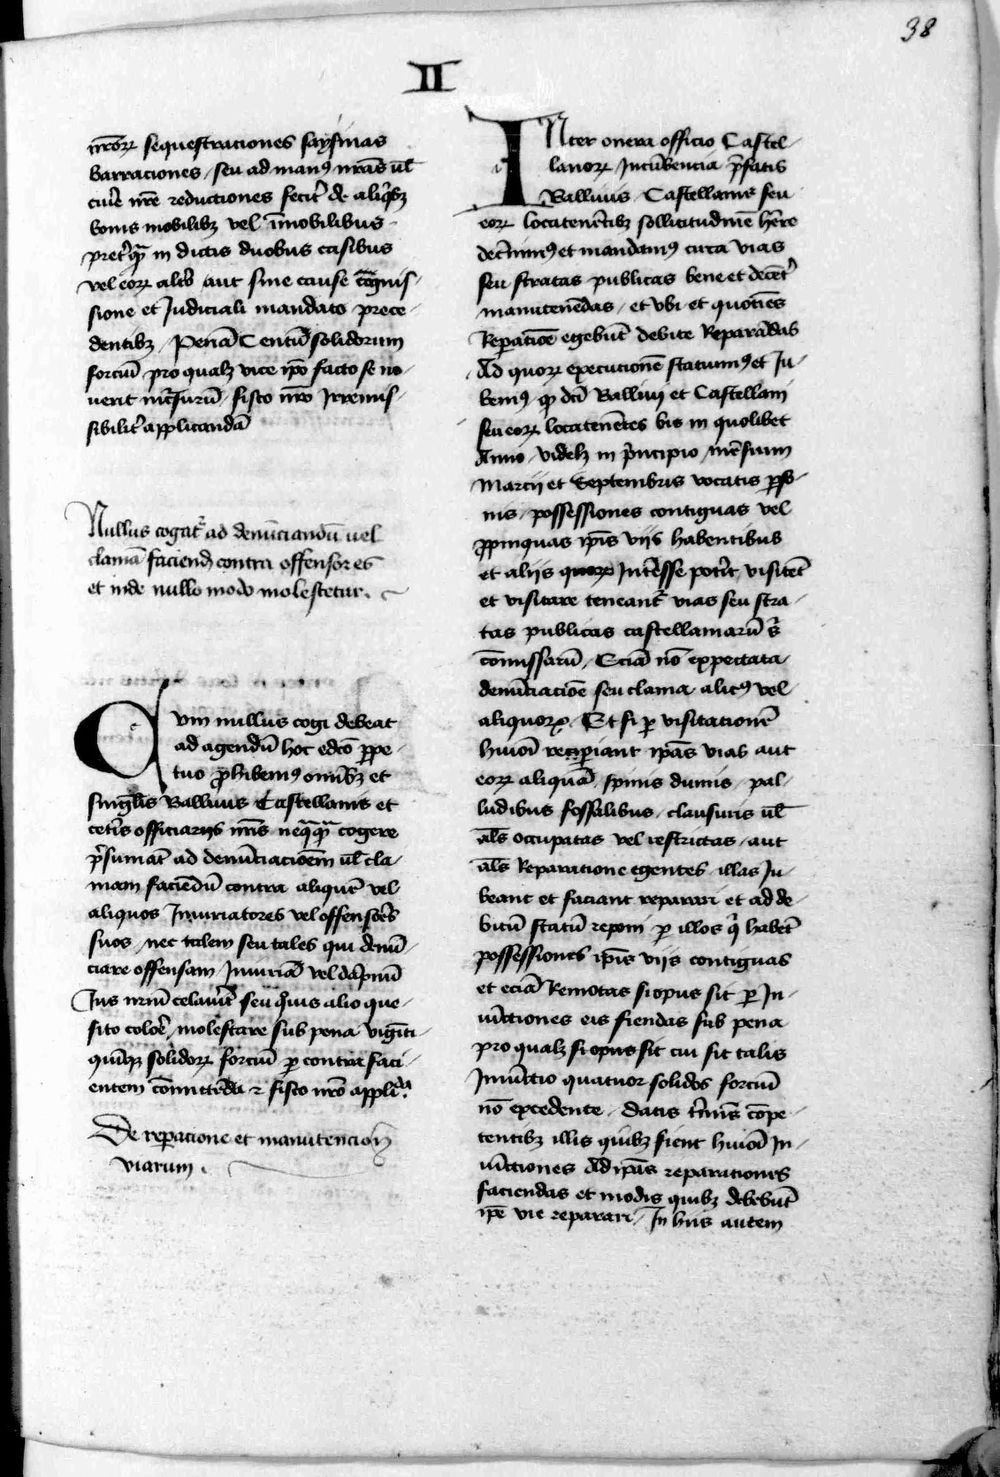 38
II
nr̄oꝝ sequestraciones saysinas
barraciones seu ad manꝰ nr̄as ul̄
curie nr̄e reductiones fecit de aliqͥbꝫ
bonis mobilibꝫ vel īmobilibus
preterqᷓ in dictis duobus casibus
vel eoꝝ alt̄o aut sine cause cognis
sione et Judiciali mandato prece
dentibꝫ Penā Centū solidorum
forciū pro qualꝫ vice ip̄o facto se no
uerit incursurū fisco nr̄o Irremis
sibilit̾ applicandā
Nullus cogat᷑ ad denūciandū vel
clamā faciend contra offensores
et inde nullo modo molestetur.
Cvm nullus cogi debeat
ad agendū hoc edc̄o perpe
tuo ꝓhibemꝰ omībꝫ et
singl̄is Balliuis Castellanis et
cet̾is officiariis nr̄is neqᷓqᷓ cogere
p̄sumāt ad denūciacioēm ul̄ cla
mam faciēdū contra aliquē vel
aliquos Iniuriatores vel offensores
suos nec talem seu tales qui denū
ciare offensam Iniuriā vel dāpnū
Jus nr̄m celauer̄t seu qͦuis alio que
sito colore molestare sub pena viginti
quīqꝫ solidoꝝ forciū ꝑ contra faci
entem cōmittēda et fisco nr̄o applicāda
De reꝑacione et manutencione
viarum.
INter onera officio Castel
lanoꝝ Incūbencia p̄fatis
Balliuis Castellanis seu
eoꝝ locatenētibꝫ sollicitudinē h̄ere
decernimꝰ et mandamꝰ circa vias
seu stratas publicas bene et decent̾
manutenēdas et vbi et quociēs
Reꝑatiōe egebūt debite Reparādas
Ad quoꝝ executionē statuimꝰ et Ju
bemꝰ ꝙ dc̄i Balliui et Castellani
seu eoꝝ locatenētes bis in quolibet
Anno videlꝫ in p̄ncipio mēsium
Marcii et Septembris vocatis ꝑso
nis possessiones contiguas vel
ꝓpinquas ip̄is viis habentibus
et aliis quoꝝ Int̾esse pot̾it visitēt
et visitare teneant᷑ vias seu stra
tas publicas castellaniarū s̄
cōmissarū Eciā nō expectata
denūciacioē seu clama alicꝰ vel
aliquoꝝ Et si ꝑ visitationē
huiōi reꝑiant ip̄as vias aut
eoꝝ aliquā spinis dumis pal
ludibus fossalibus clausuris ul̄
al̄s occupatas vel restrictas aut
al̄s Reparatione egentes illas Ju
beant et faciant reparari et ad de
bitū statū reponi ꝑ illos qͥ habēt
possessiones ip̄is viis contiguas
et eciā Remotas si opus sit ꝑ In
iūctiones eis fiendas sub pena
pro qualꝫ si opus sit cui fit talis
Iniūctio quatuor solidos forciū
nō excedente datis t̾minis cōpe
tentibꝫ illis quibꝫ fient huiōi In
iūctiones Ad ip̄as reparationes
faciendas et modis quibꝫ debebūt
ip̄e vie reparari In hiis autem